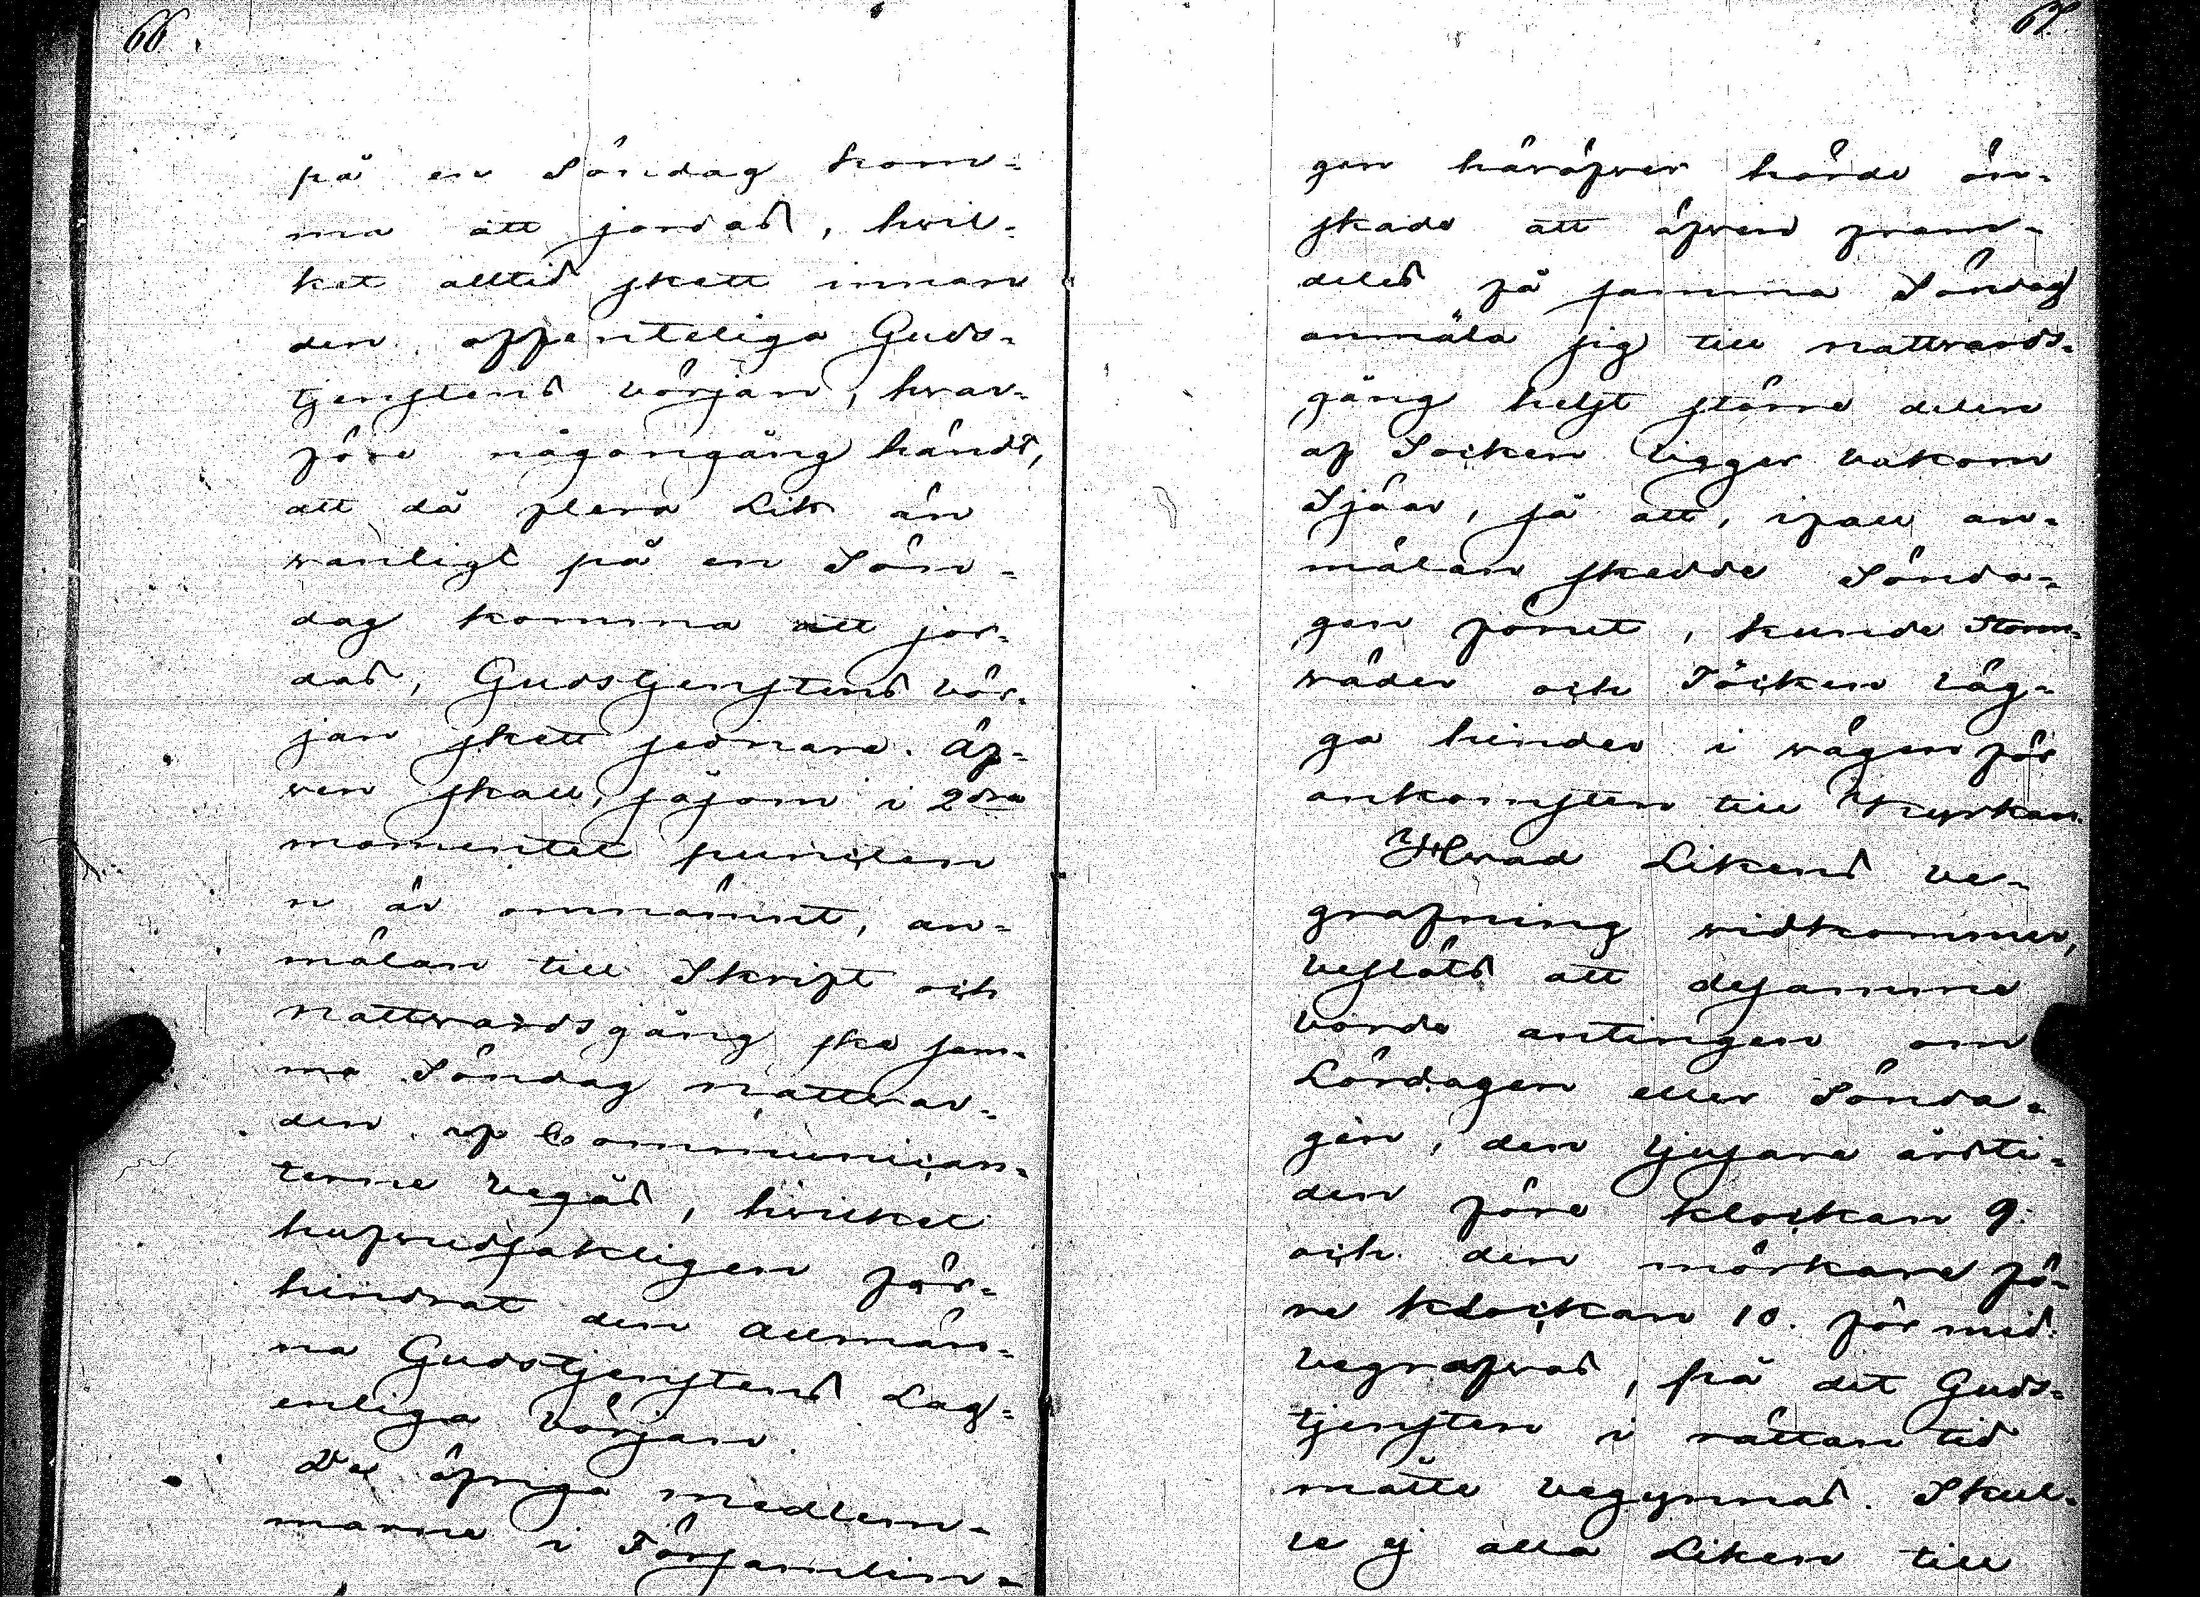 66.
på en Söndag kom-
ma att jordas, hwil-
ket alltid skett innan
den offenteliga Guds-
tjenstens början, hvar-
före någongång händt,
att då flera Lik än
wanligt på en Sön-
dag komma att jor-
das, Gudstjenstens bör-
jan skett sednare. Äf-
ven skall, såsom i 2dra
momentet puncten
n är omnämnt, an-
mälan till Skrift och
nattwardsgång ske sam-
ma Söndag nattvar-
den af Communican-
terne begås, hwilket
hufwudsakligen för-
hindrat den allmän-
na Gudstjenstens Lag-
enliga början.
De öfriga medlem-
marne i Församlin-
67.
gen häröfver hörde ön-
skade att äfven fram-
deles på samma Söndag
anmäla sig till nattvards-
gång helst större delen
af Socken ligger bakom
Sjöar, så att, ifall an-
mälan skedde Sönda-
gen förut, kunde Storm-
wäder och Töcken läg-
ga hinder i wägen för
ankomsten till Kyrkan.
Hvad Likens be-
grafning widkommer,
beslöts att desamme
borde antingen om
Lördagen eller Sönda-
gen, den ljusare årsti-
den före klockan 9.
och den mörkare fö-
re klockan 10. för mid.
begrafvas, på det Guds-
tjensten i rättan tid
måtte begynnas. Skul-
le ej alla Liken till